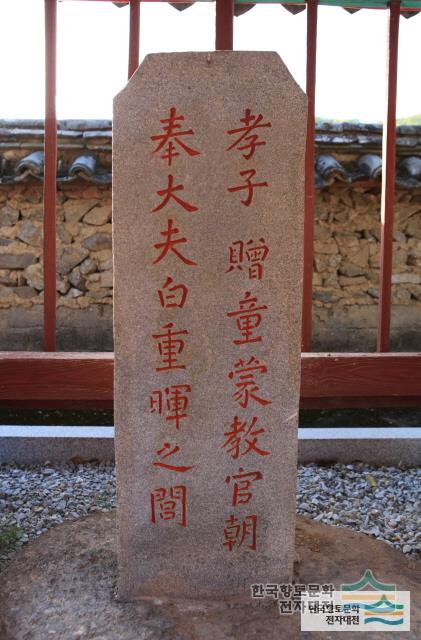 孝子 贈童蒙教官朝
奉大夫白重暉之閭
한국향토문화
전자대전
한국향토문화
전자대전